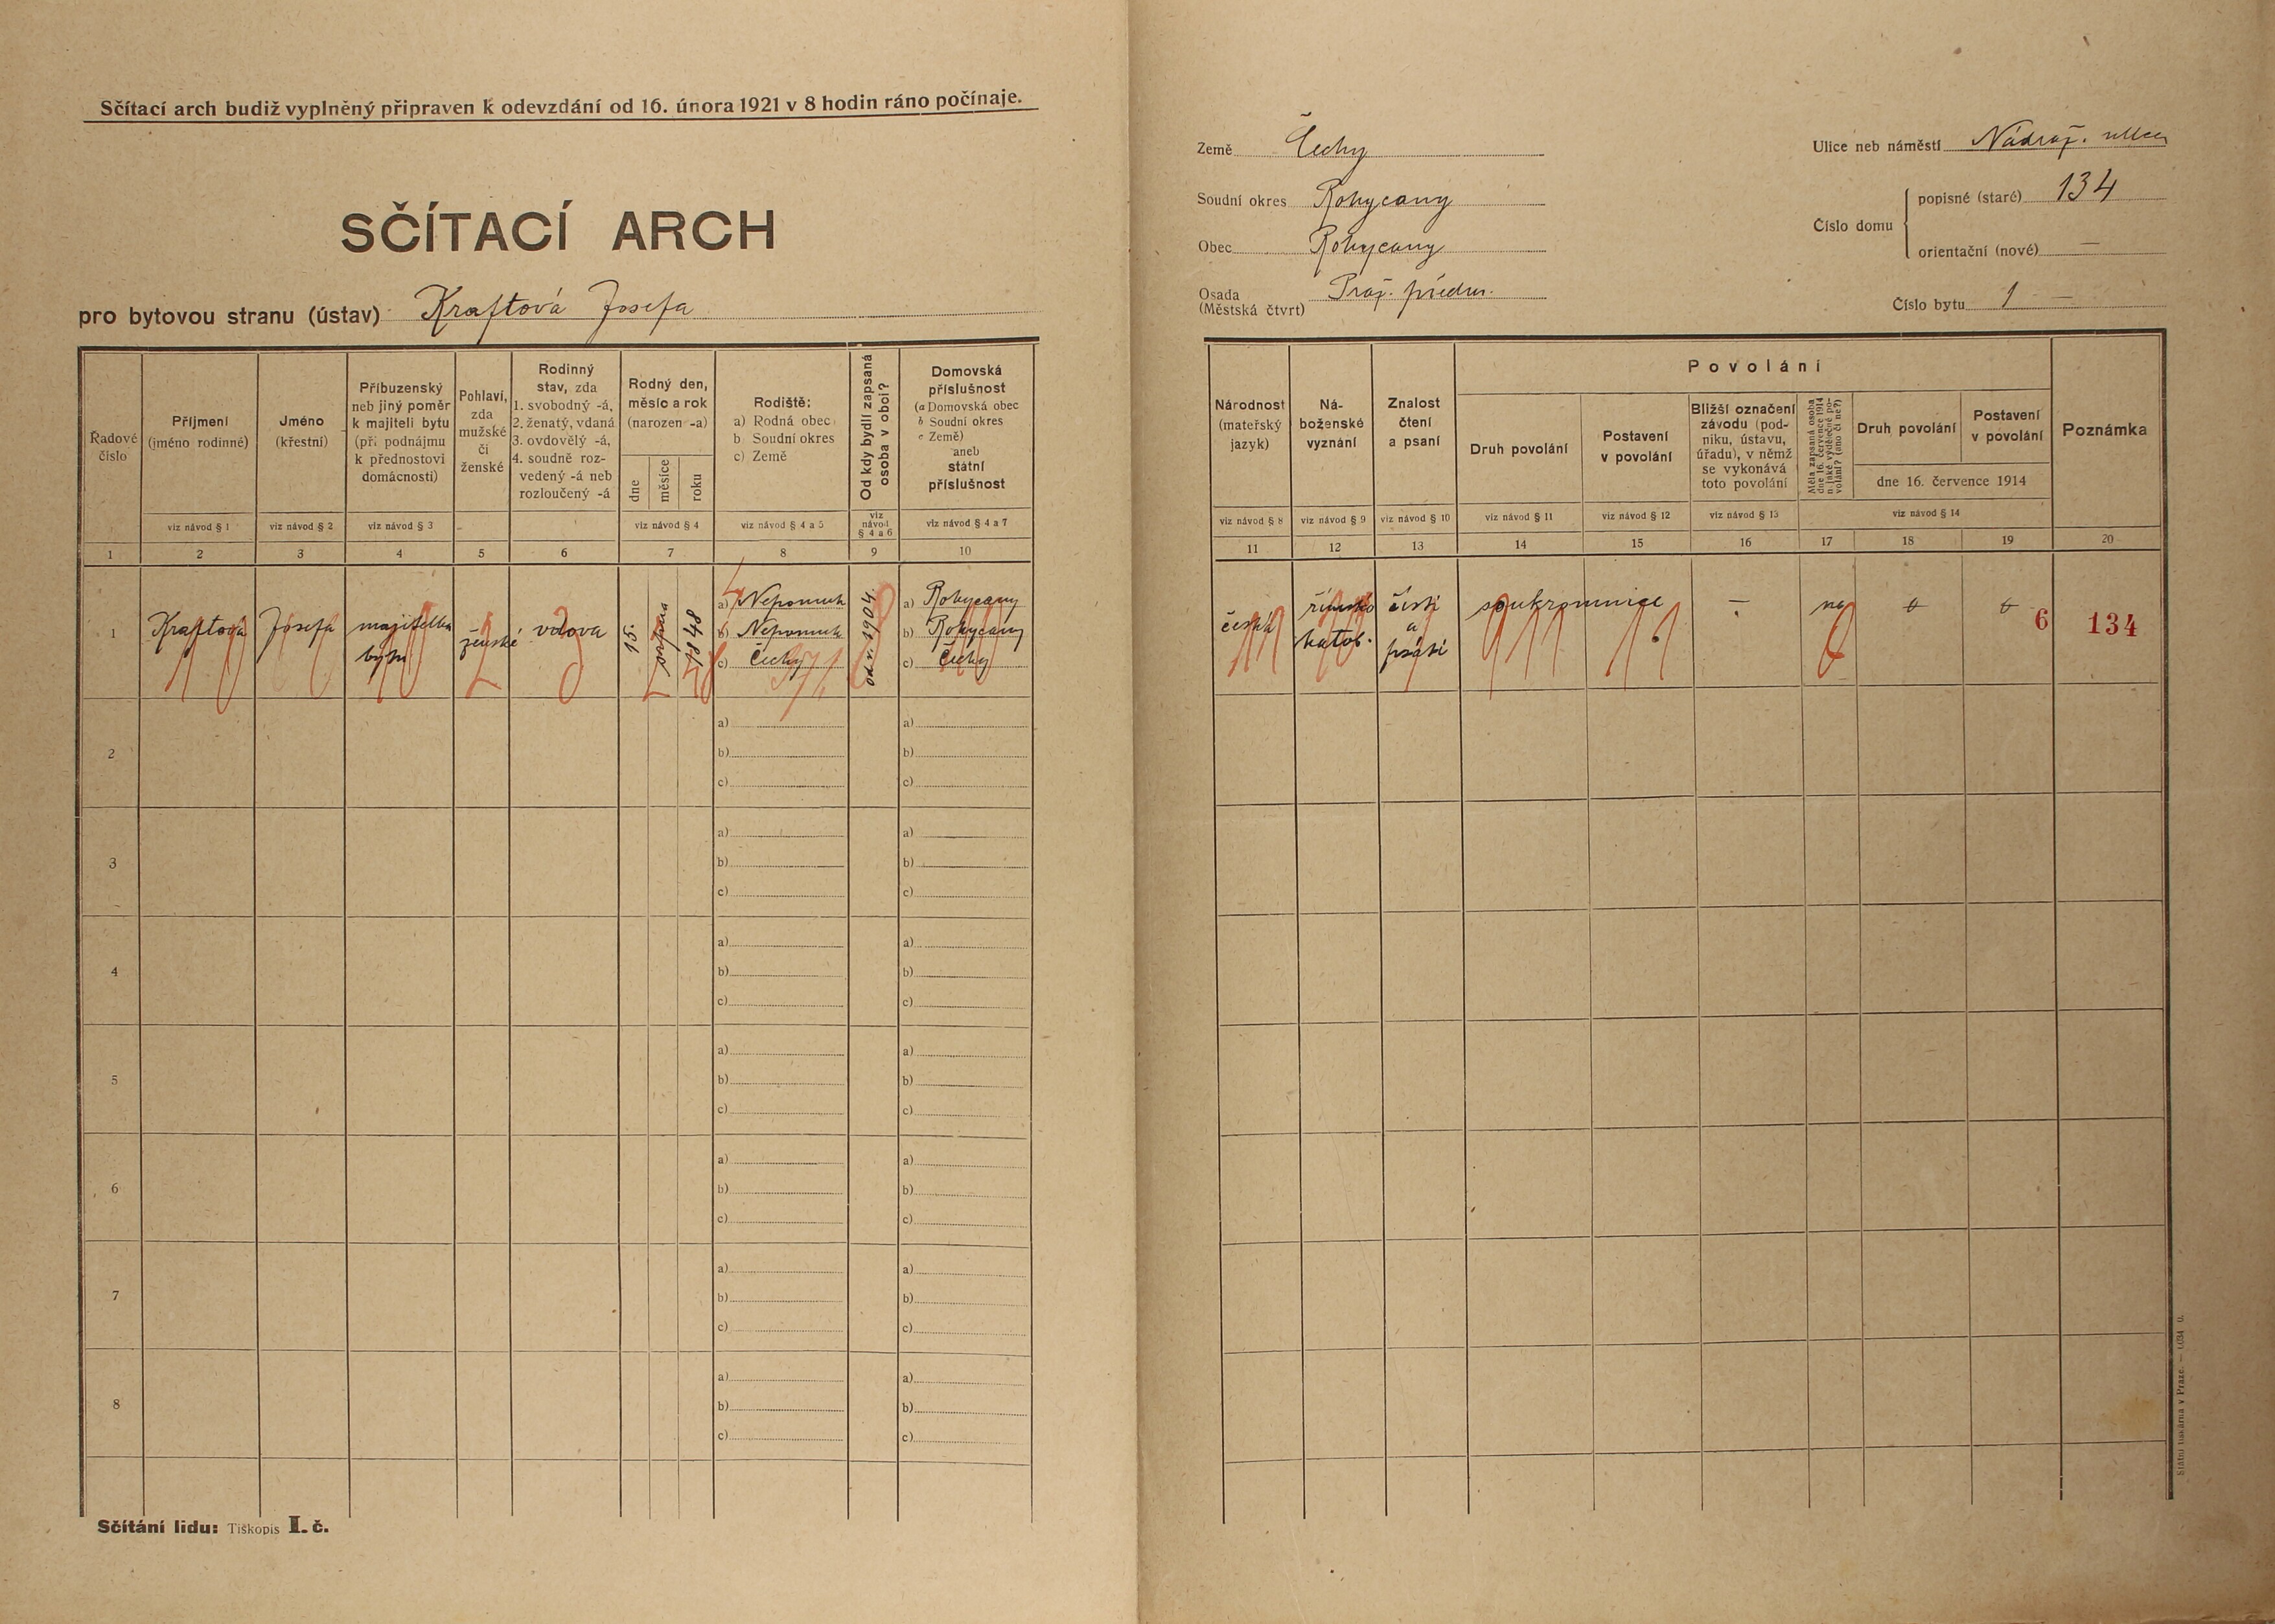 Sčítací arch budiž vyplněný připraven k odevzdání od 16. února 1921 v 8 hodin ráno počínaje.
SČÍTACÍ ARCH
pro bytovou stranu (ústav) Kraftová Josefa
Země Čechy
Soudní okres Rokycany
Obec Rokycany
Osada
(Městská čtvrť) Praž. předm.
Ulice neb náměstí Nádraž. ulice
Číslo domu
popisné (staré) 134
orientační (nové) —
Číslo bytu 1 —
Řadové
číslo
Příjmení
(jméno rodinné)
Jméno
(křestní)
Příbuzenský
neb jiný poměr
k majiteli bytu
(při podnájmu
k přednostovi
domácnosti)
Pohlaví,
zda
mužské
či
ženské
Rodinný
stav, zda
1. svobodný -á,
2. ženatý, vdaná
3. ovdovělý -á,
4. soudně roz-
vedený -á neb
rozloučený -á
Rodný den,
měsíc a rok
(narozen -a)
dne
měsíce
roku
Rodiště:
a) Rodná obec
b) Soudní okres
c) Země
Od kdy bydlí zapsaná
osoba v obci?
Domovská
příslušnost
(a Domovská obec
b Soudní okres
c Země)
aneb
státní
příslušnost
viz návod § 1
viz návod § 2
viz návod § 3
viz návod § 4
viz návod § 4 a 5
viz
návod
§ 4 a 6
viz návod § 4 a 7
1 2 3 4 5 6 7 8 9 10
Národnost
(mateřský
jazyk)
Ná-
boženské
vyznání
Znalost
čtení
a psaní
Povolání
Druh povolání
Postavení
v povolání
Bližší označení
závodu (pod-
niku, ústavu,
úřadu), v němž
se vykonává
toto povolání
Měla zapsaná osoba
dne 16. července 1914
nějaké výdělečné po-
volání? (ano či ne?)
Druh povolání
Postavení
v povolání
dne 16. července 1914
Poznámka
viz návod § 8
viz návod § 9
viz návod § 10
viz návod § 11
viz návod § 12
viz návod § 13
viz návod § 14
11 12 13 14 15 16 17 18 19 20
1
Kraftová
Josefa
majitelka
bytu
ženské
vdova
15.
srpna
1848
a) Nepomuk
b) Nepomuk
c) Čechy
od r. 1904
a) Rokycany
b) Rokycany
c) Čechy
česká
římsko
katol.
čísti
a
psáti
soukromnice
—
ne
6
134
2
a) a)
b) b)
c) c)
3
a) a)
b) b)
c) c)
4
a) a)
b) b)
c) c)
5
a) a)
b) b)
c) c)
6
a) a)
b) b)
c) c)
7
a) a)
b) b)
c) c)
8
a) a)
b) b)
c) c)
Sčítání lidu: Tiskopis I. č.
Státní tiskárna v Praze.